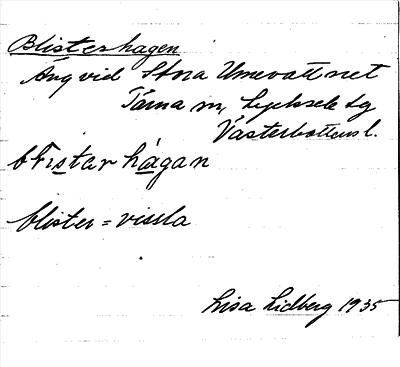 Blisterhagen
Äng vid Stora Umevattnet
Tärna sn, Lycksele lg
Västerbottens l.
blistarhágan
blister = vissla
Lisa Lidberg 1935